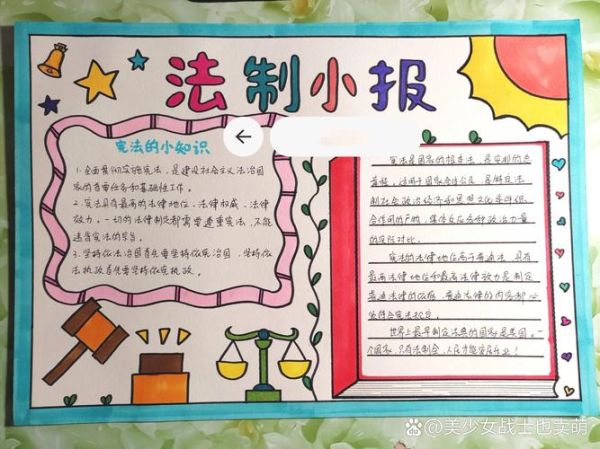 法制小报
宪法的小知识
1.全面贯彻实施宪法，是建设社会主义法治国
家的首要任务和基础性工作。
2.宪法具有最高的法律地位、法律权威、法律
效力。一切的法律制定都需要遵重宪法，不能
违背宪法的
3.坚持依法治国首先要坚持依宪治国，坚持依
法执政首先要坚持依宪执政。
宪法是国家的根本法，是安邦的总
章程，适用于国家全体公民，是
社会政治经济和思想文化条件
作用的产物，集中反应各种政治力量
的实际对比。
宪法的法律地位高于普通法，具有
最高法律地位和最高法律效力是制定
普通法律的依据，普通法律的内容都必
须符合宪法规定。
世界上最早制定法典的国家是英国。一
个国家，只有法制全，人民才能安居乐业！
Bai
@美少女战士也卖萌